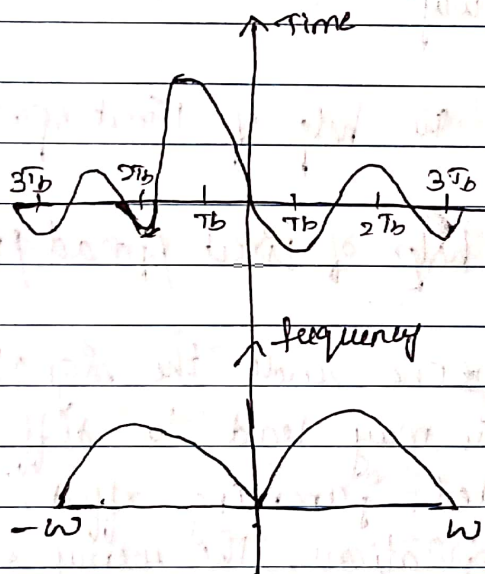 Time
3Tb 2Tb Tb Tb 2Tb 3Tb
fequency
-W W